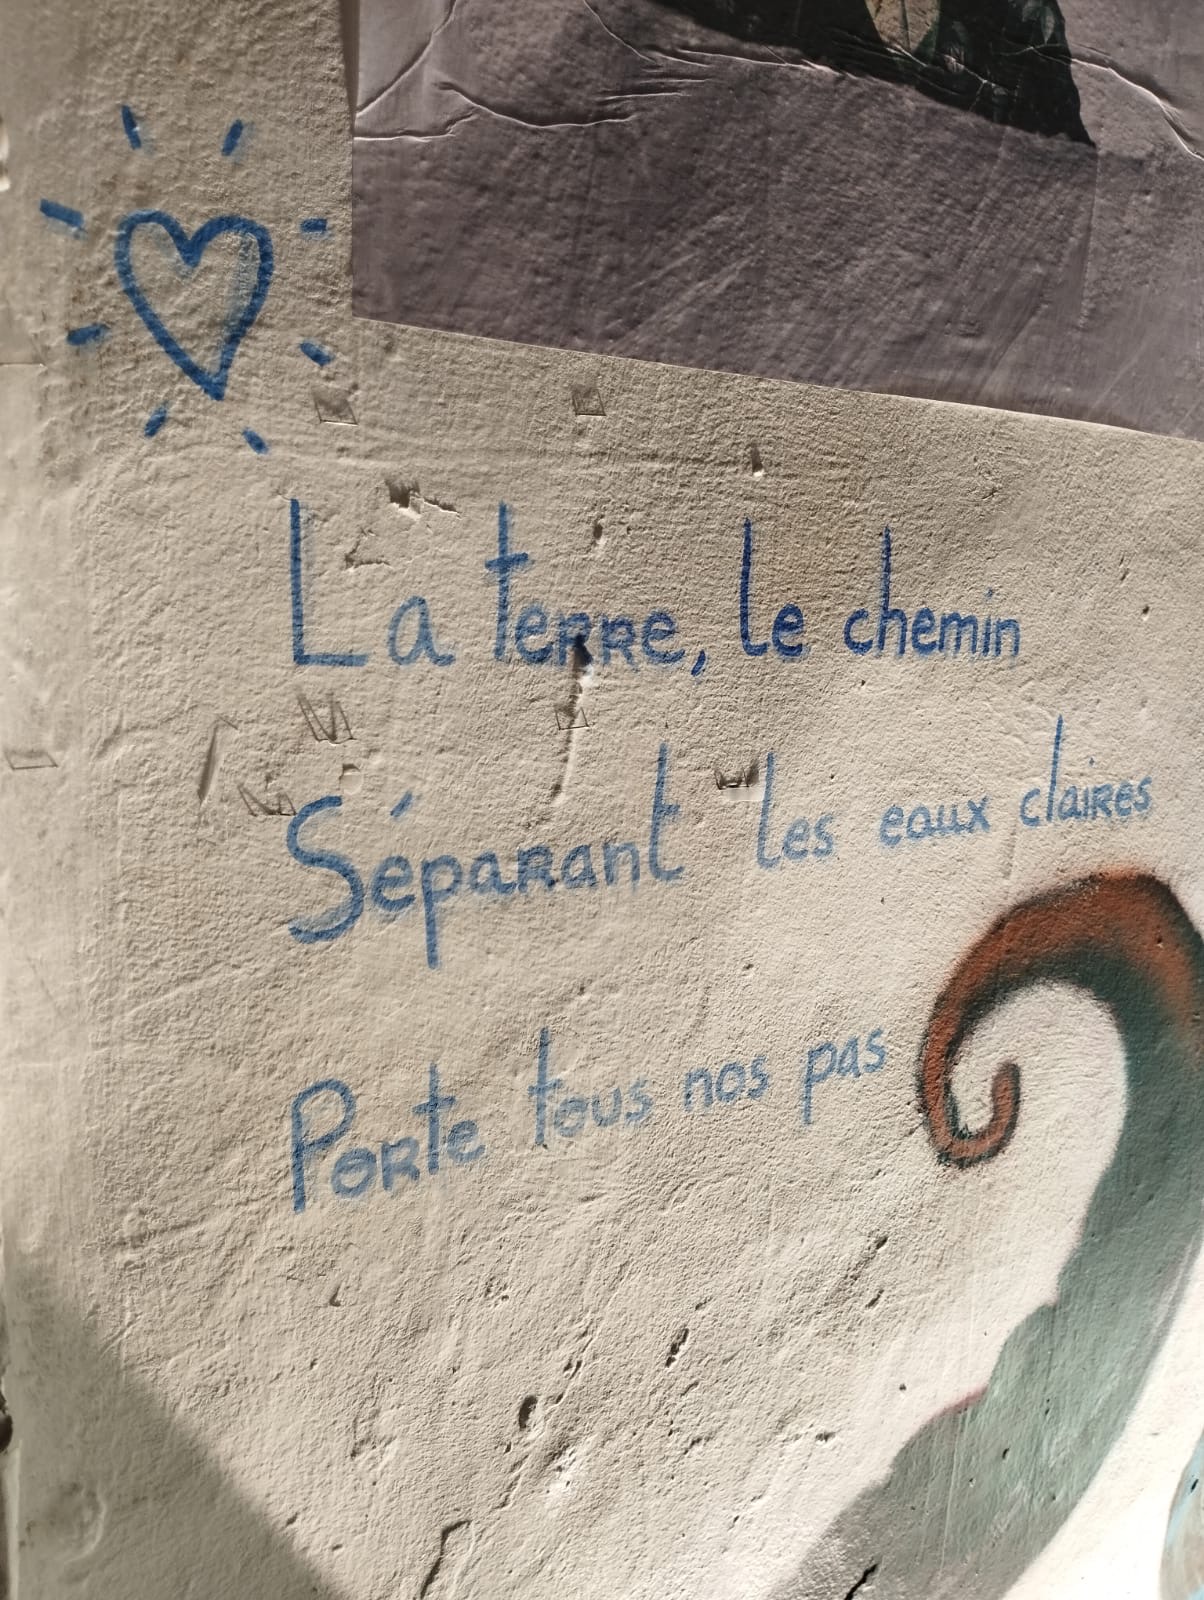 La terre, le chemin
Séparant les eaux claires
Porte tous nos pas